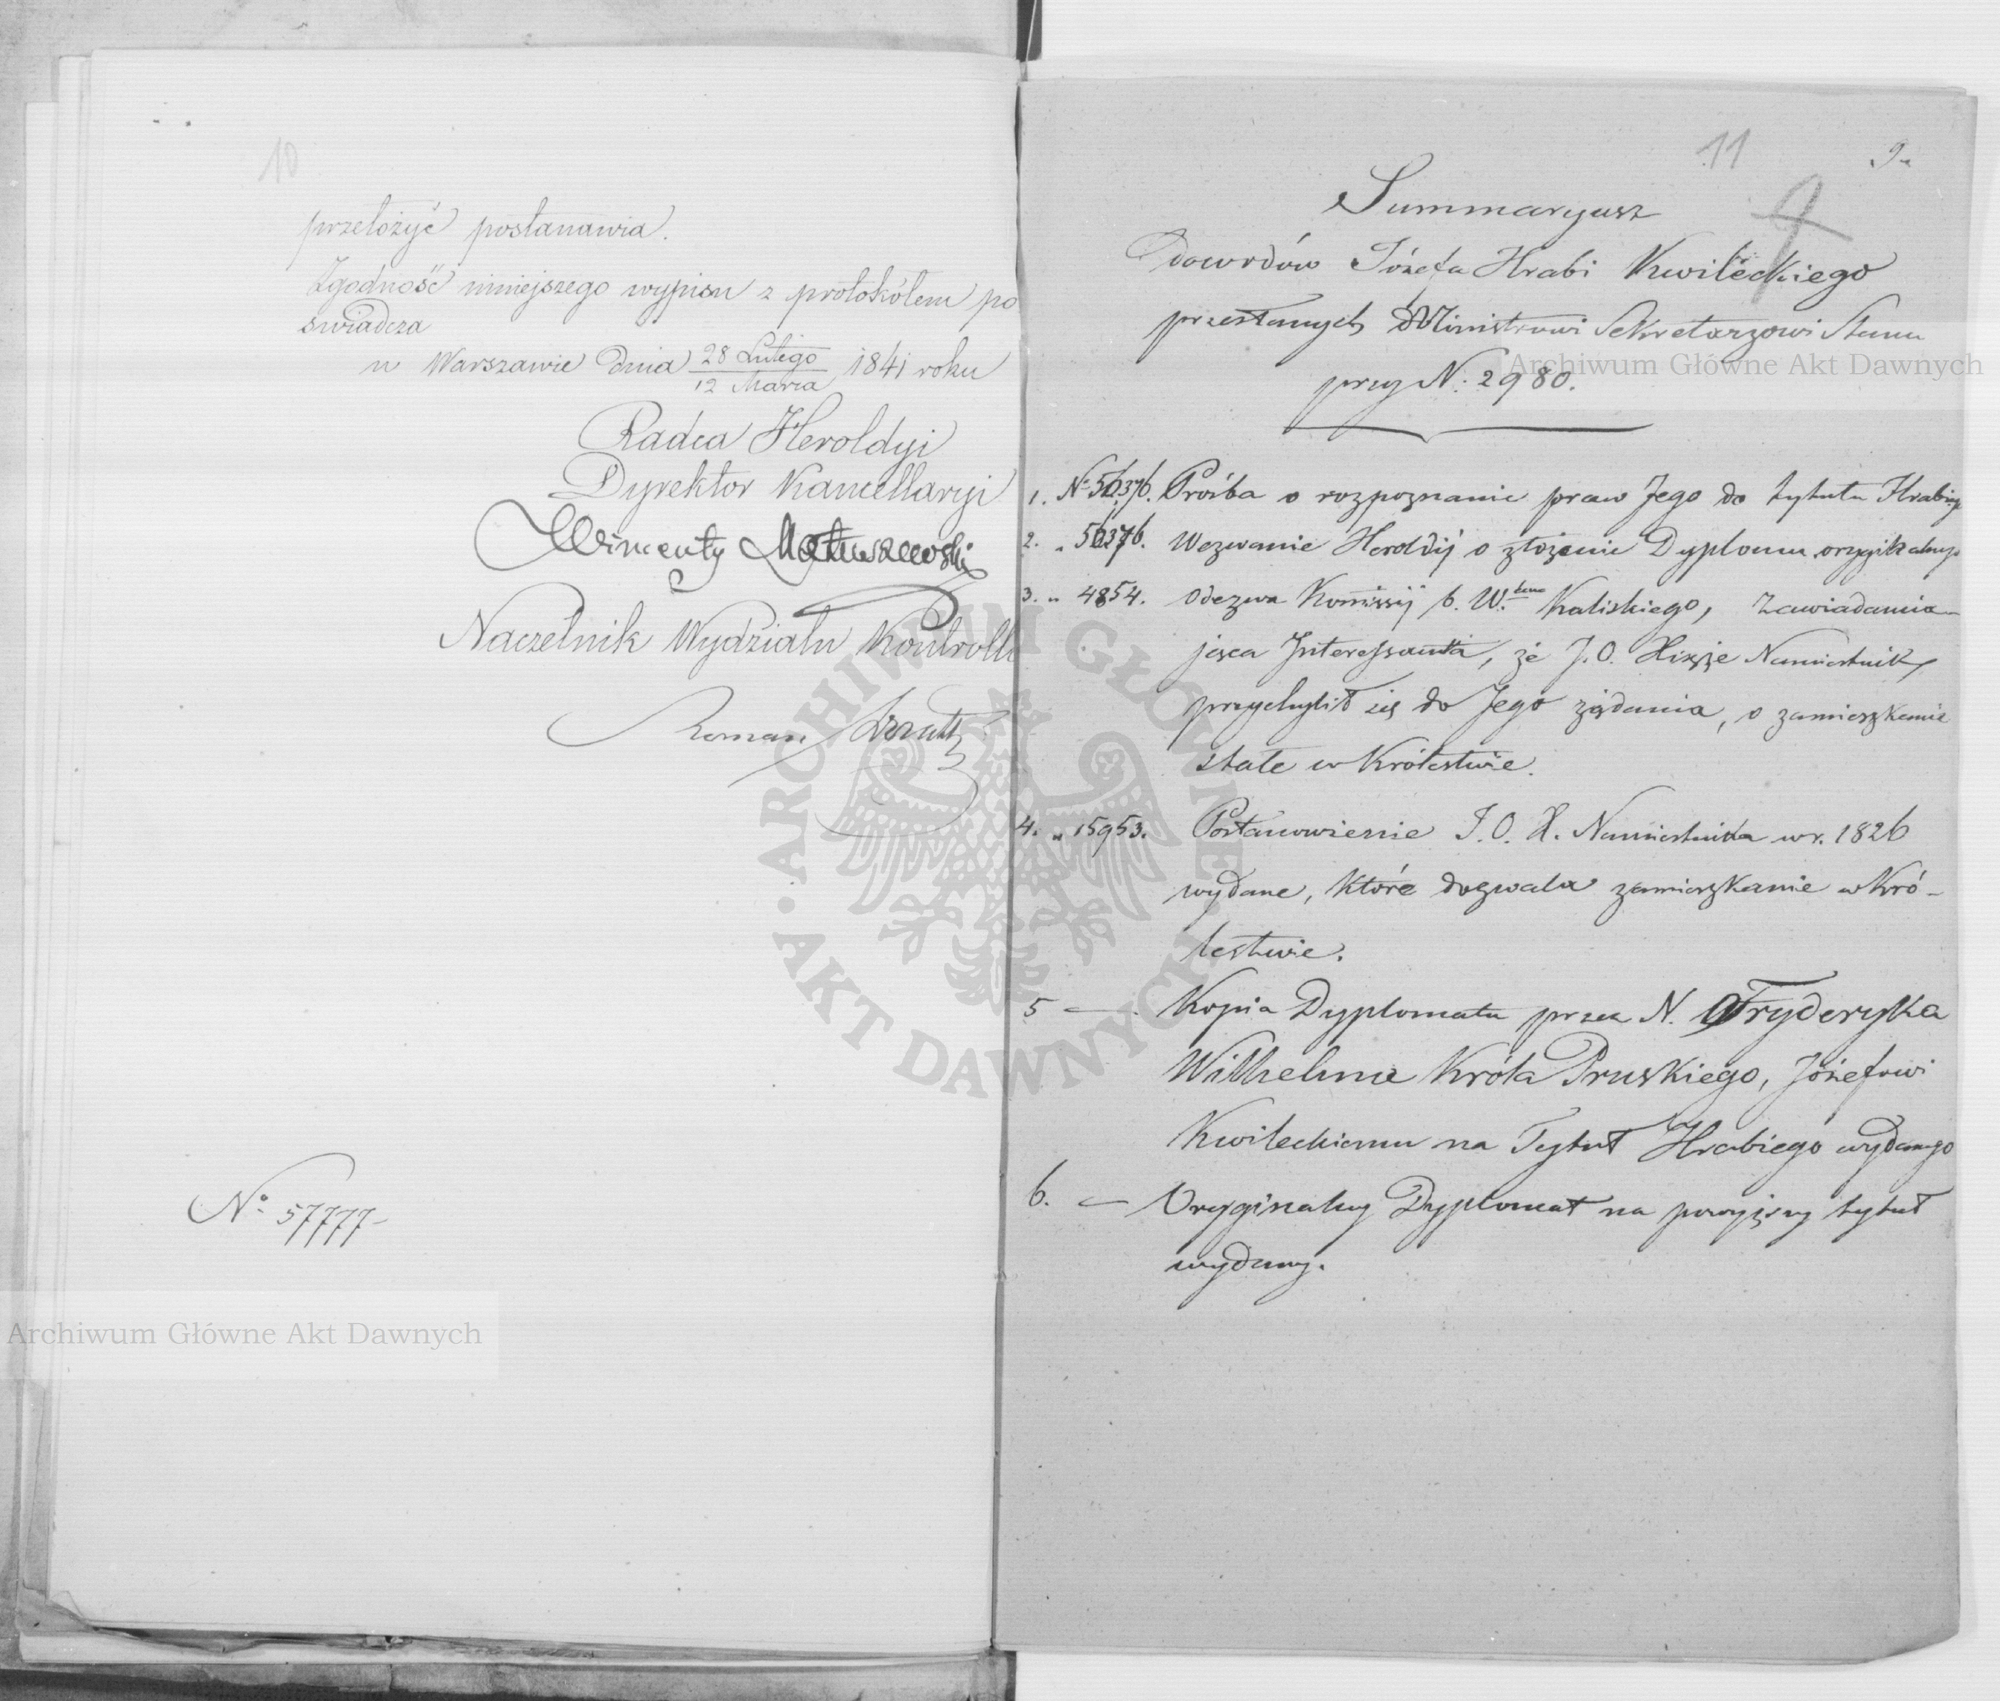 10
przełożyć postanawia.
Zgodność niniejszego wypisu z protokółem po
świadcza
w Warszawie dnia 28 Lutego / 12 Marca 1841 roku
Radca Heroldyi
Dyrektor Kancellaryi
Wincenty Matuszewski
Naczelnik Wydziału Kontrolli
Roman
No 57777
Archiwum Główne Akt Dawnych
11
9
Summaryusz
dowodów Józefa Hrabi Kwileckiego
przesłanych Ministrowi Sekretarzowi Stanu
przy N: 2980.
Archiwum Główne Akt Dawnych
1. No 56376. Prośba o rozpoznanie praw Jego do tytułu Hrabiego
2. „ 56376. Wezwanie Heroldyi o złożenie Dyplomu oryginalnego
3. „ 4854. Odezwa Komissyi b. W.dztwa Kaliskiego, zawiadamia-
jąca Interessanta, że J. O. Xiąże Namiestnik,
przychylił się do Jego żądania, o zamieszkanie
stałe w Królestwie.
4. „ 15953. Postanowienie J. O. X. Namiestnika w r. 1826
wydane, które dozwala zamieszkanie w Kró-
lestwie.
5 — Kopia Dyplomatu przez N. Fryderyka
Wilhelma Króla Pruskiego, Józefowi
Kwileckiemu na Tytuł Hrabiego wydanego
6. — Oryginalny Dyplomat na powyższy tytuł
wydany.
ARCHIWUM GŁÓWNE
AKT DAWNYCH